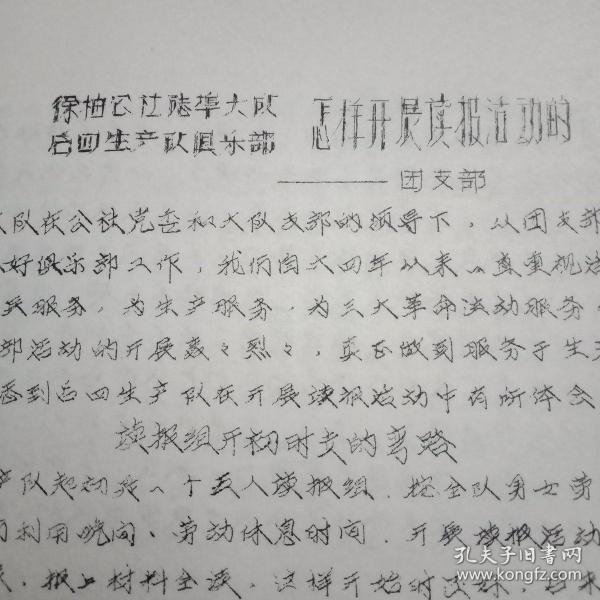 徐柏公社陆华大队
后四生产队俱乐部
怎样开展读报活动的
——团支部
队在公社党委和大队支部的领导下，从团支部
好俱乐部工作，我们自六四年以来
服务，为生产服务，为三大革命运动服务
部活动的开展轰々烈々，真正做到服务于生
到后四生产队在开展读报活动中有所体会
读报组开初时走的弯路
产队起初
十五人读报组，把全队男女劳
利用晚间、劳动休息时间，开展读报活动
报上材料全读，这样开始时
孔夫子旧书网
www.kongfz.com